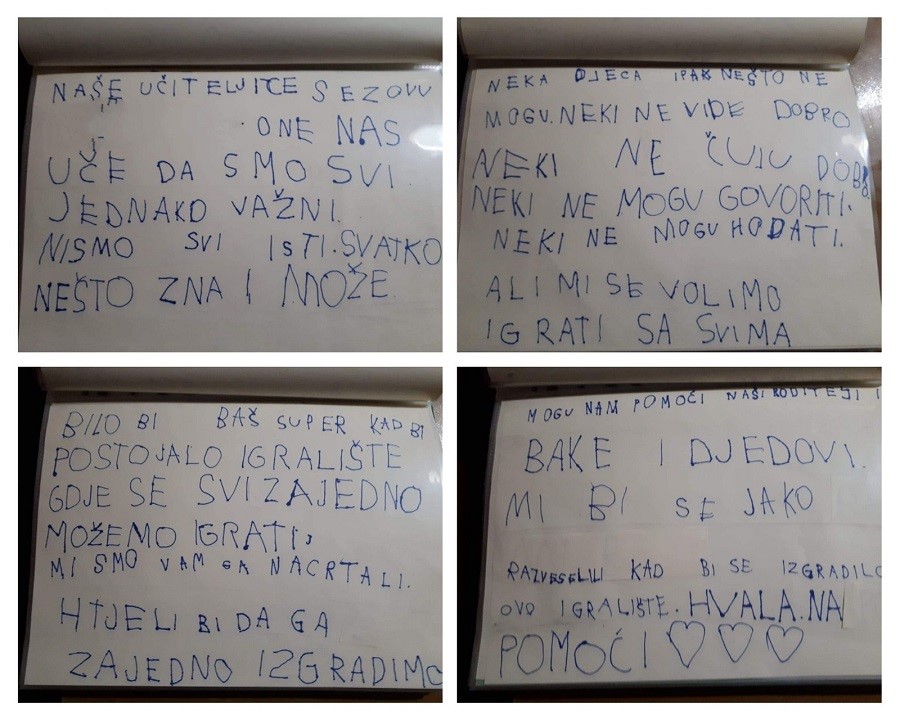 NAŠE UČITELJICE SE ZOVU
ONE NAS
UČE DA SMO SVI
JEDNAKO VAŽNI.
NISMO SVI ISTI. SVATKO
NEŠTO ZNA I MOŽE.
NEKA DJECA IPAK NEŠTO NE
MOGU. NEKI NE VIDE DOBRO
NEKI NE ČUJU DOBRO
NEKI NE MOGU GOVORITI.
NEKI NE MOGU HODATI.
ALI MI SE VOLIMO
IGRATI SA SVIMA
BILO BI BAŠ SUPER KAD BI
POSTOJALO IGRALIŠTE
GDJE SE SVI ZAJEDNO
MOŽEMO IGRATI.
MI SMO VAM GA NACRTALI.
HTJELI BI DA GA
ZAJEDNO IZGRADIMO
MOGU NAM POMOĆI NAŠI RODITELJI I
BAKE I DJEDOVI.
MI BI SE JAKO
RAZVESELILI KAD BI SE IZGRADILO
OVO IGRALIŠTE. HVALA. NA
POMOĆI ♡♡♡